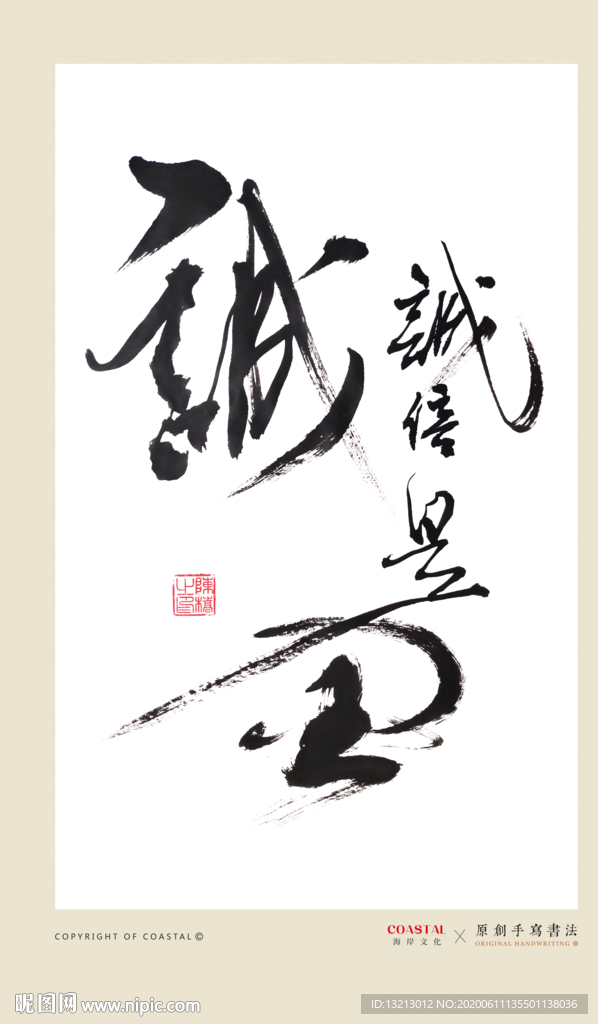 誠
誠信是
COPYRIGHT OF COASTAL©
COASTAL
海岸文化
×
原創手寫書法
ORIGINAL HANDWRITING
昵图网 www.nipic.com
ID:13213012 NO:20200611135501138036